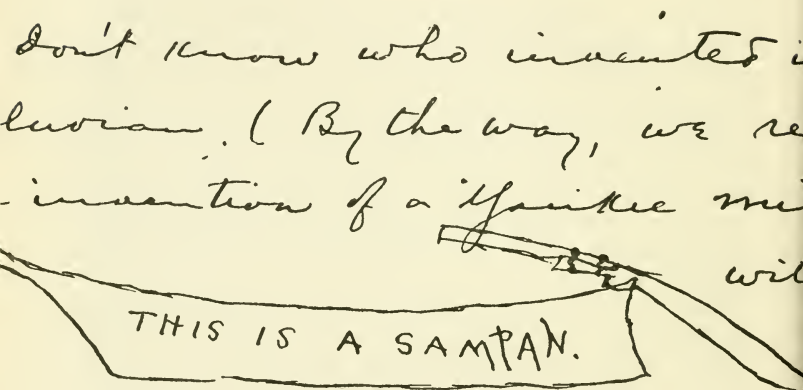 don't know who invented i
luvian. ( By the way, we re
invention of a Yankee mi
wil
THIS IS A SAMPAN.